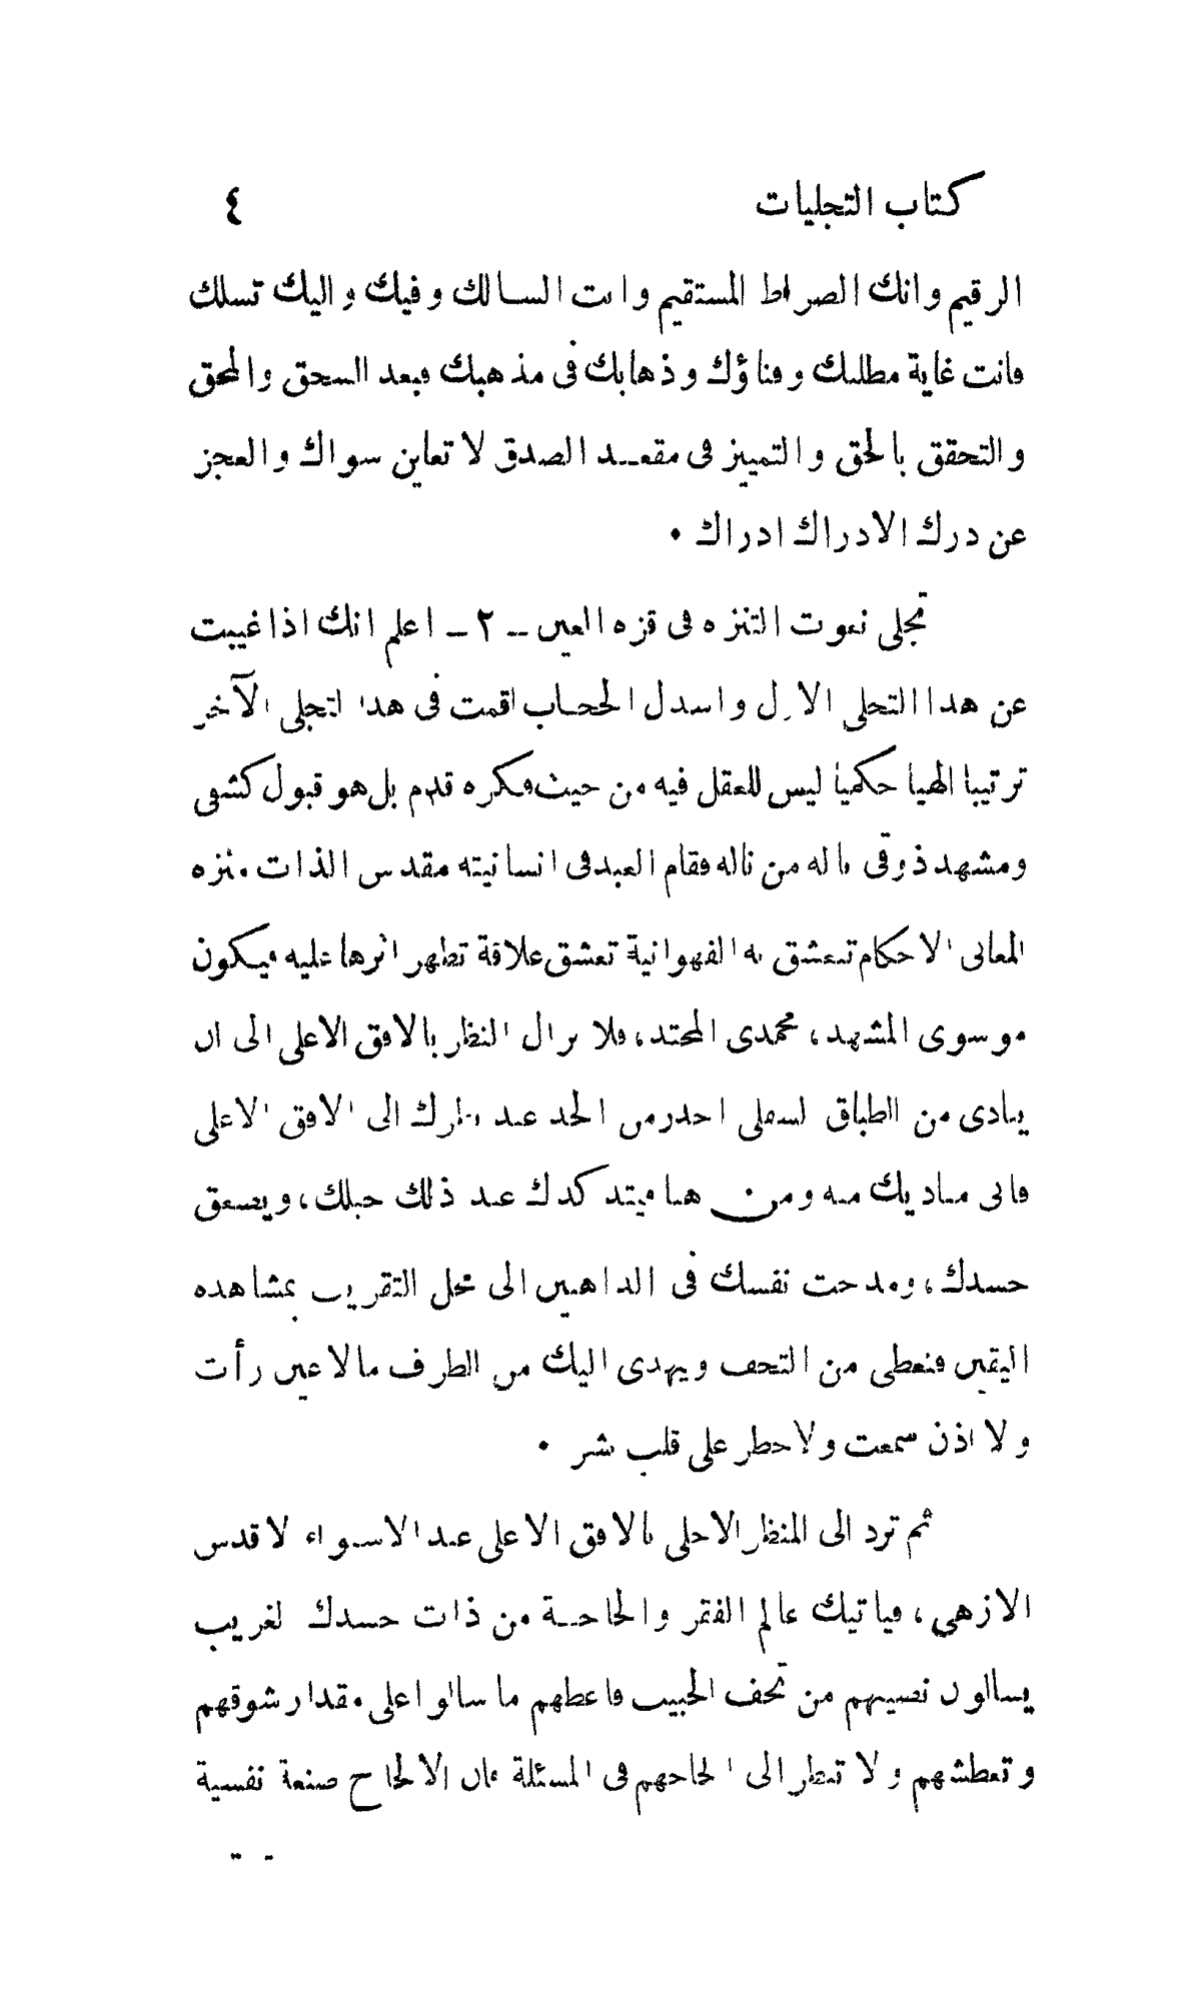 كتاب التجليات ٤
الرقيم وانك الصراط المستقيم وانت السالك وفيك واليك تسلك
فانت غاية مطلبك وفناؤك وذهابك فى مذهبك فبعد السحق والمحق
والتحقق بالحق والتمييز فى مقعد الصدق لا تعاين سواك والعجز
عن درك الادراك ادراك •
تجلى نعوت التنزه فى قزه العين - ٢ - اعلم انك اذا غيبت
عن هذا التجلى الاول واسدل الحجاب اقمت فى هذا التجلى الآخر
ترتيبا الهيا حكميا ليس للعقل فيه من حيث فكره قدم بل هو قبول كشفى
ومشهد ذوقى ناله من ناله فقام العبد فى انسانيته مقدس الذات منزه
المعانى الاحكام تتعشق به الفهوانية تعشق علاقة تظهر اثرها عليه فيكون
موسوى المشهد، محمدى المحتد، فلا يزال النظر بالافق الاعلى الى ان
ينادى من الطباق السفلى احذر من الحد عند نظرك الى الافق الاعلى
فانى مناديك منه ومن هنا فيتدكدك عند ذلك جبلك، ويصعق
جسدك، وتذهب نفسك فى الذاهبين الى محل التقريب بمشاهده
اليقين فتعطى من التحف ويهدى اليك من الطرف ما لا عين رأت
ولا اذن سمعت ولا خطر على قلب بشر •
ثم ترد الى المنظر الاجلى بالافق الاعلى عند الاستواء لاقدس
الازهى، فياتيك عالم الفقر والحاجة من ذات جسدك الغريب
يسالون نصيبهم من تحف الحبيب فاعطهم ما سالوا على مقدار شوقهم
وتعطشهم ولا تنظر الى الحاحهم فى المسئلة فان الالحاح صنعة نفسية